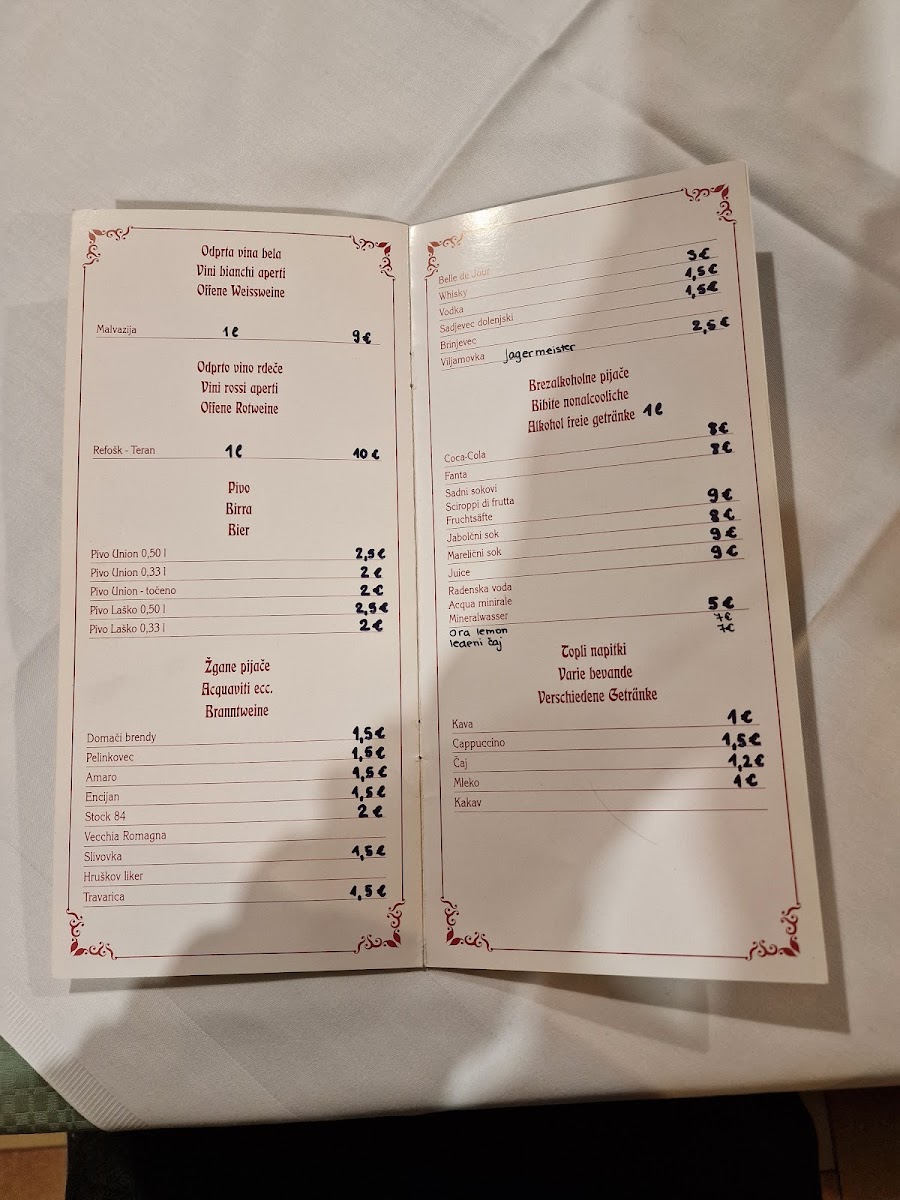 Odprta vina bela
Vini bianchi aperti
Offene Weissweine
Malvazija 1ℓ 9€
Odprto vino rdeče
Vini rossi aperti
Offene Rotweine
Refošk - Teran 1ℓ 10€
Pivo
Birra
Bier
Pivo Union 0,50 l 2,5€
Pivo Union 0,33 l 2€
Pivo Union - točeno 2€
Pivo Laško 0,50 l 2,5€
Pivo Laško 0,33 l 2€
Žgane pijače
Acquaviti ecc.
Branntweine
Domači brendy 1,5€
Pelinkovec 1,5€
Amaro 1,5€
Encijan 1,5€
Stock 84 2€
Vecchia Romagna
Slivovka 1,5€
Hruškov liker
Travarica 1,5€
Belle de Jour
Whisky 3€
Vodka 1,5€
Sadjevec dolenjski 1,5€
Brinjevec
Viljamovka Jagermeister 2,5€
Brezalkoholne pijače
Bibite nonalcooliche
Alkohol freie getränke 1ℓ
Coca-Cola 8€
Fanta 8€
Sadni sokovi
Sciroppi di frutta
Fruchtsäfte 9€
Jabolčni sok 8€
Marelični sok 9€
Juice 9€
Radenska voda
Acqua minirale
Mineralwasser 5€
Ora lemon 7€
ledeni čaj 7€
Topli napitki
Varie bevande
Verschiedene Getränke
Kava 1€
Cappuccino 1,5€
Čaj 1,2€
Mleko 1€
Kakav